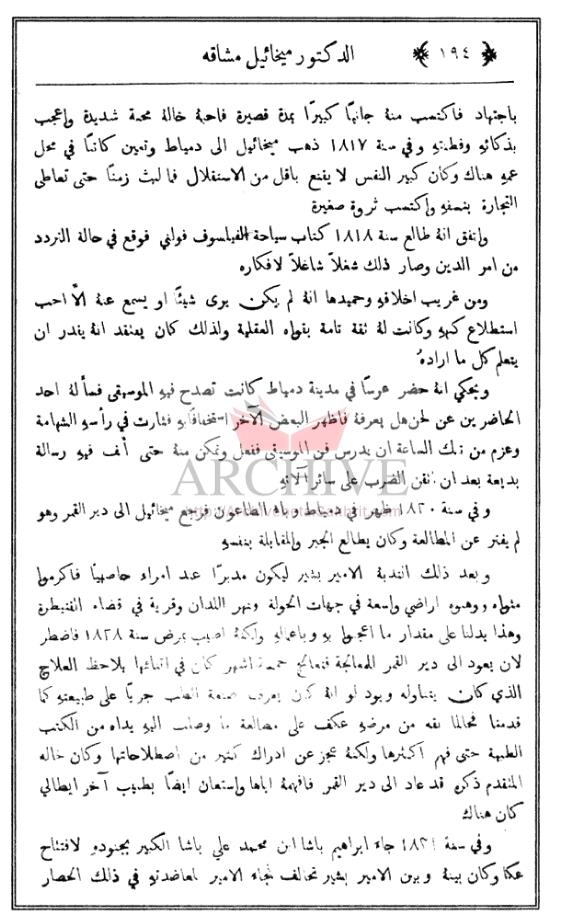 ﴿ ١٩٤ ﴾ الدكتور ميخائيل مشاقه
باجتهاد فاكتسب منهُ جانبًا كبيرًا بمدة قصيرة فاحبهُ خالهُ محبة شديدة واعجب
بذكائهِ وفطنتهِ وفي سنة ١٨١٧ ذهب ميخائيل الى دمياط وتعين كاتبًا في محل
عمهِ هناك وكان كبير النفس لا يقنع باقل من الاستقلال فما لبث زمنًا حتى تعاطى
التجارة بنفسهِ واكتسب ثروة صغيرة
واتفق انهُ طالع سنة ١٨١٨ كتاب سياحة الفيلسوف فولني فوقع في حالة التردد
من امر الدين وصار ذلك شغلاً شاغلاً لافكاره
ومن غريب اخلاقهِ وحميدها انهُ لم يكن يرى شيئًا او يسمع عنهُ الاّ احب
استطلاع كنههِ وكانت لهُ ثقة تامة بقواه العقلية ولذلك كان يعتقد انهُ يقدر ان
يتعلم كل ما ارادهُ
ويحكى انهُ حضر عرسًا في مدينة دمياط كانت تصدح فيهِ الموسيقى فسألهُ احد
الحاضرين عن لحن هل يعرفهُ فاظهر البعض الآخر استخفافًا بهِ فثارت في رأسهِ الشهامة
وعزم من تلك الساعة ان يدرس فن الموسيقى ففعل وتمكن منهُ حتى ألف فيهِ رسالة
بديعة بعد ان اتقن الضرب على سائر آلاتهِ
ARCHIVE
وفي سنة ١٨٢٠ ظهر في دمياط وباء الطاعون فرجع ميخائيل الى دير القمر وهو
لم يفتر عن المطالعة وكان يطالع الجبر والمقابلة بنفسهِ
وبعد ذلك انتدبهُ الامير بشير ليكون مدبرًا عند امراء حاصبيا فاكرموا
مثواه ووهبوه اراضي واسعة في جهات الحولة ونهر اللدان وقرية في قضاء القنيطرة
وهذا يدلنا على مقدار ما اعجبوا بهِ وباعمالهِ ولكنهُ اصيب بمرض سنة ١٨٢٨ فاضطر
لان يعود الى دير القمر للمعالجة فتعالج خمسة اشهر كان في اثنائها يلاحظ العلاج
الذي كان يتناوله ويود لو انهُ كان يعرف صنعة الطب جريًا على طبيعتهِ كما
قدمنا فحالما نقه من مرضهِ عكف على مطالعة ما وصلت اليهِ يداه من الكتب
الطبية حتى فهم اكثرها ولكنهُ عجز عن ادراك كثير من اصطلاحاتها وكان خاله
المتقدم ذكره قد عاد الى دير القمر فافهمهُ اياها واستعان ايضًا بطبيب آخر ايطالي
كان هناك
وفي سنة ١٨٣١ جاء ابراهيم باشا ابن محمد علي باشا الكبير بجنودهِ لافتتاح
عكا وكان بينهُ وبين الامير بشير تحالف فجاء الامير لمعاضدتهِ في ذلك الحصار